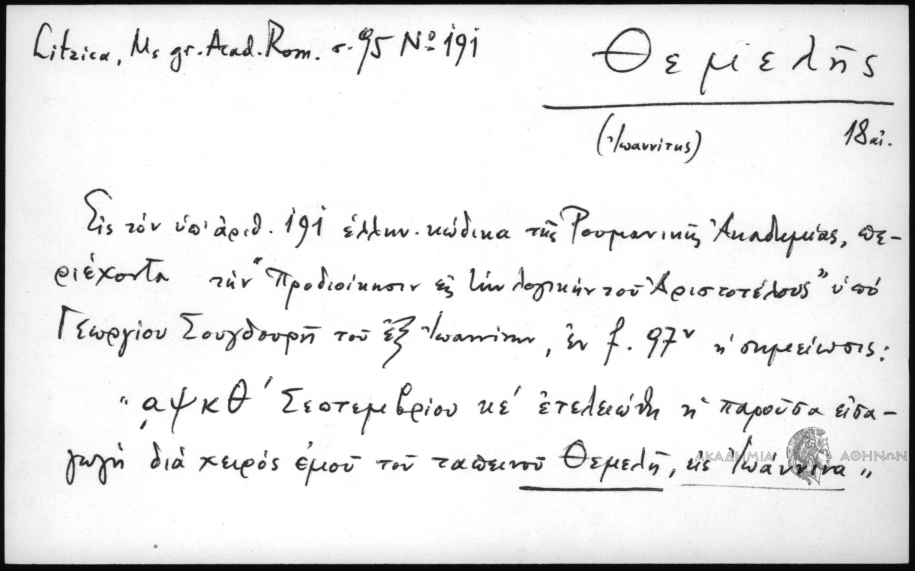 Litzica, Ms gr. Acad. Rom. σ. 95 Nº 191
Θεμελῆς
(Ἰωαννίτης) 18 αἰ.
Εἰς τόν ὑπ' ἀριθ. 191 ἑλλην. κώδικα τῆς Ρουμανικῆς Ἀκαδημίας, πε-
ριέχοντα τήν "Προδιοίκησιν εἰς τήν λογικήν τοῦ Ἀριστοτέλους" ὑπό
Γεωργίου Σουγδουρῆ τοῦ ἐξ Ἰωαννίνων, ἐν f. 97ᵛ ἡ σημείωσις:
"͵αψκθ´ Σεπτεμβρίου κε´ ἐτελειώθη ἡ παροῦσα εἰσα-
γωγή διά χειρός ἐμοῦ τοῦ ταπεινοῦ Θεμελῆ, εἰς Ἰωάννινα"
ΑΚΑΔΗΜΙΑ ΑΘΗΝΩΝ